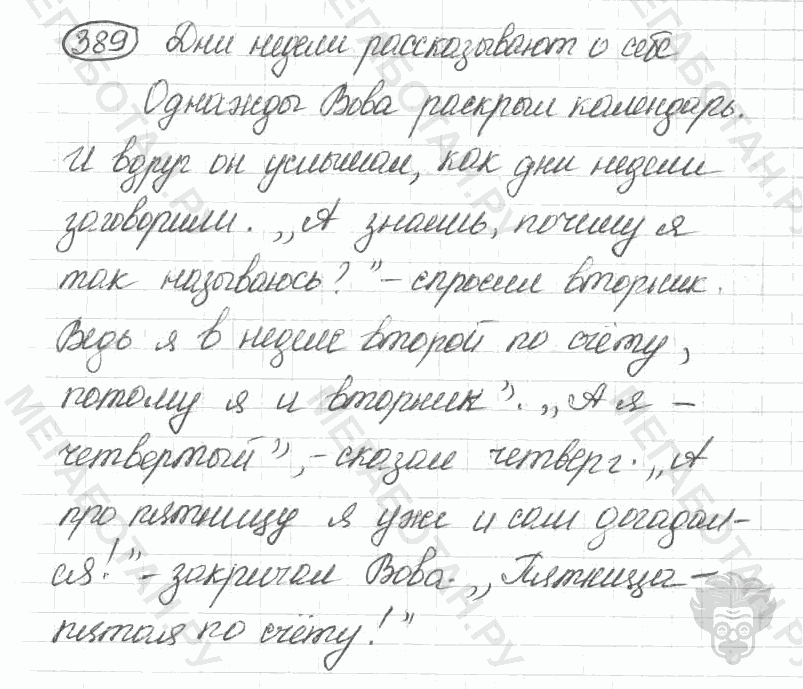 389 Дни недели рассказывают о себе
Однажды Вова раскрыл календарь.
И вдруг он услышал, как дни недели
заговорили. „А знаешь, почему я
так называюсь?" – спросил вторник.
Ведь я в неделе второй по счёту,
потому я и вторник". „А я –
четвертый", – сказал четверг. „А
про пятницу я уже и сам догадал-
ся!" – закричал Вова. „Пятница –
пятая по счёту!"
МЕГАБОТАН.РУ